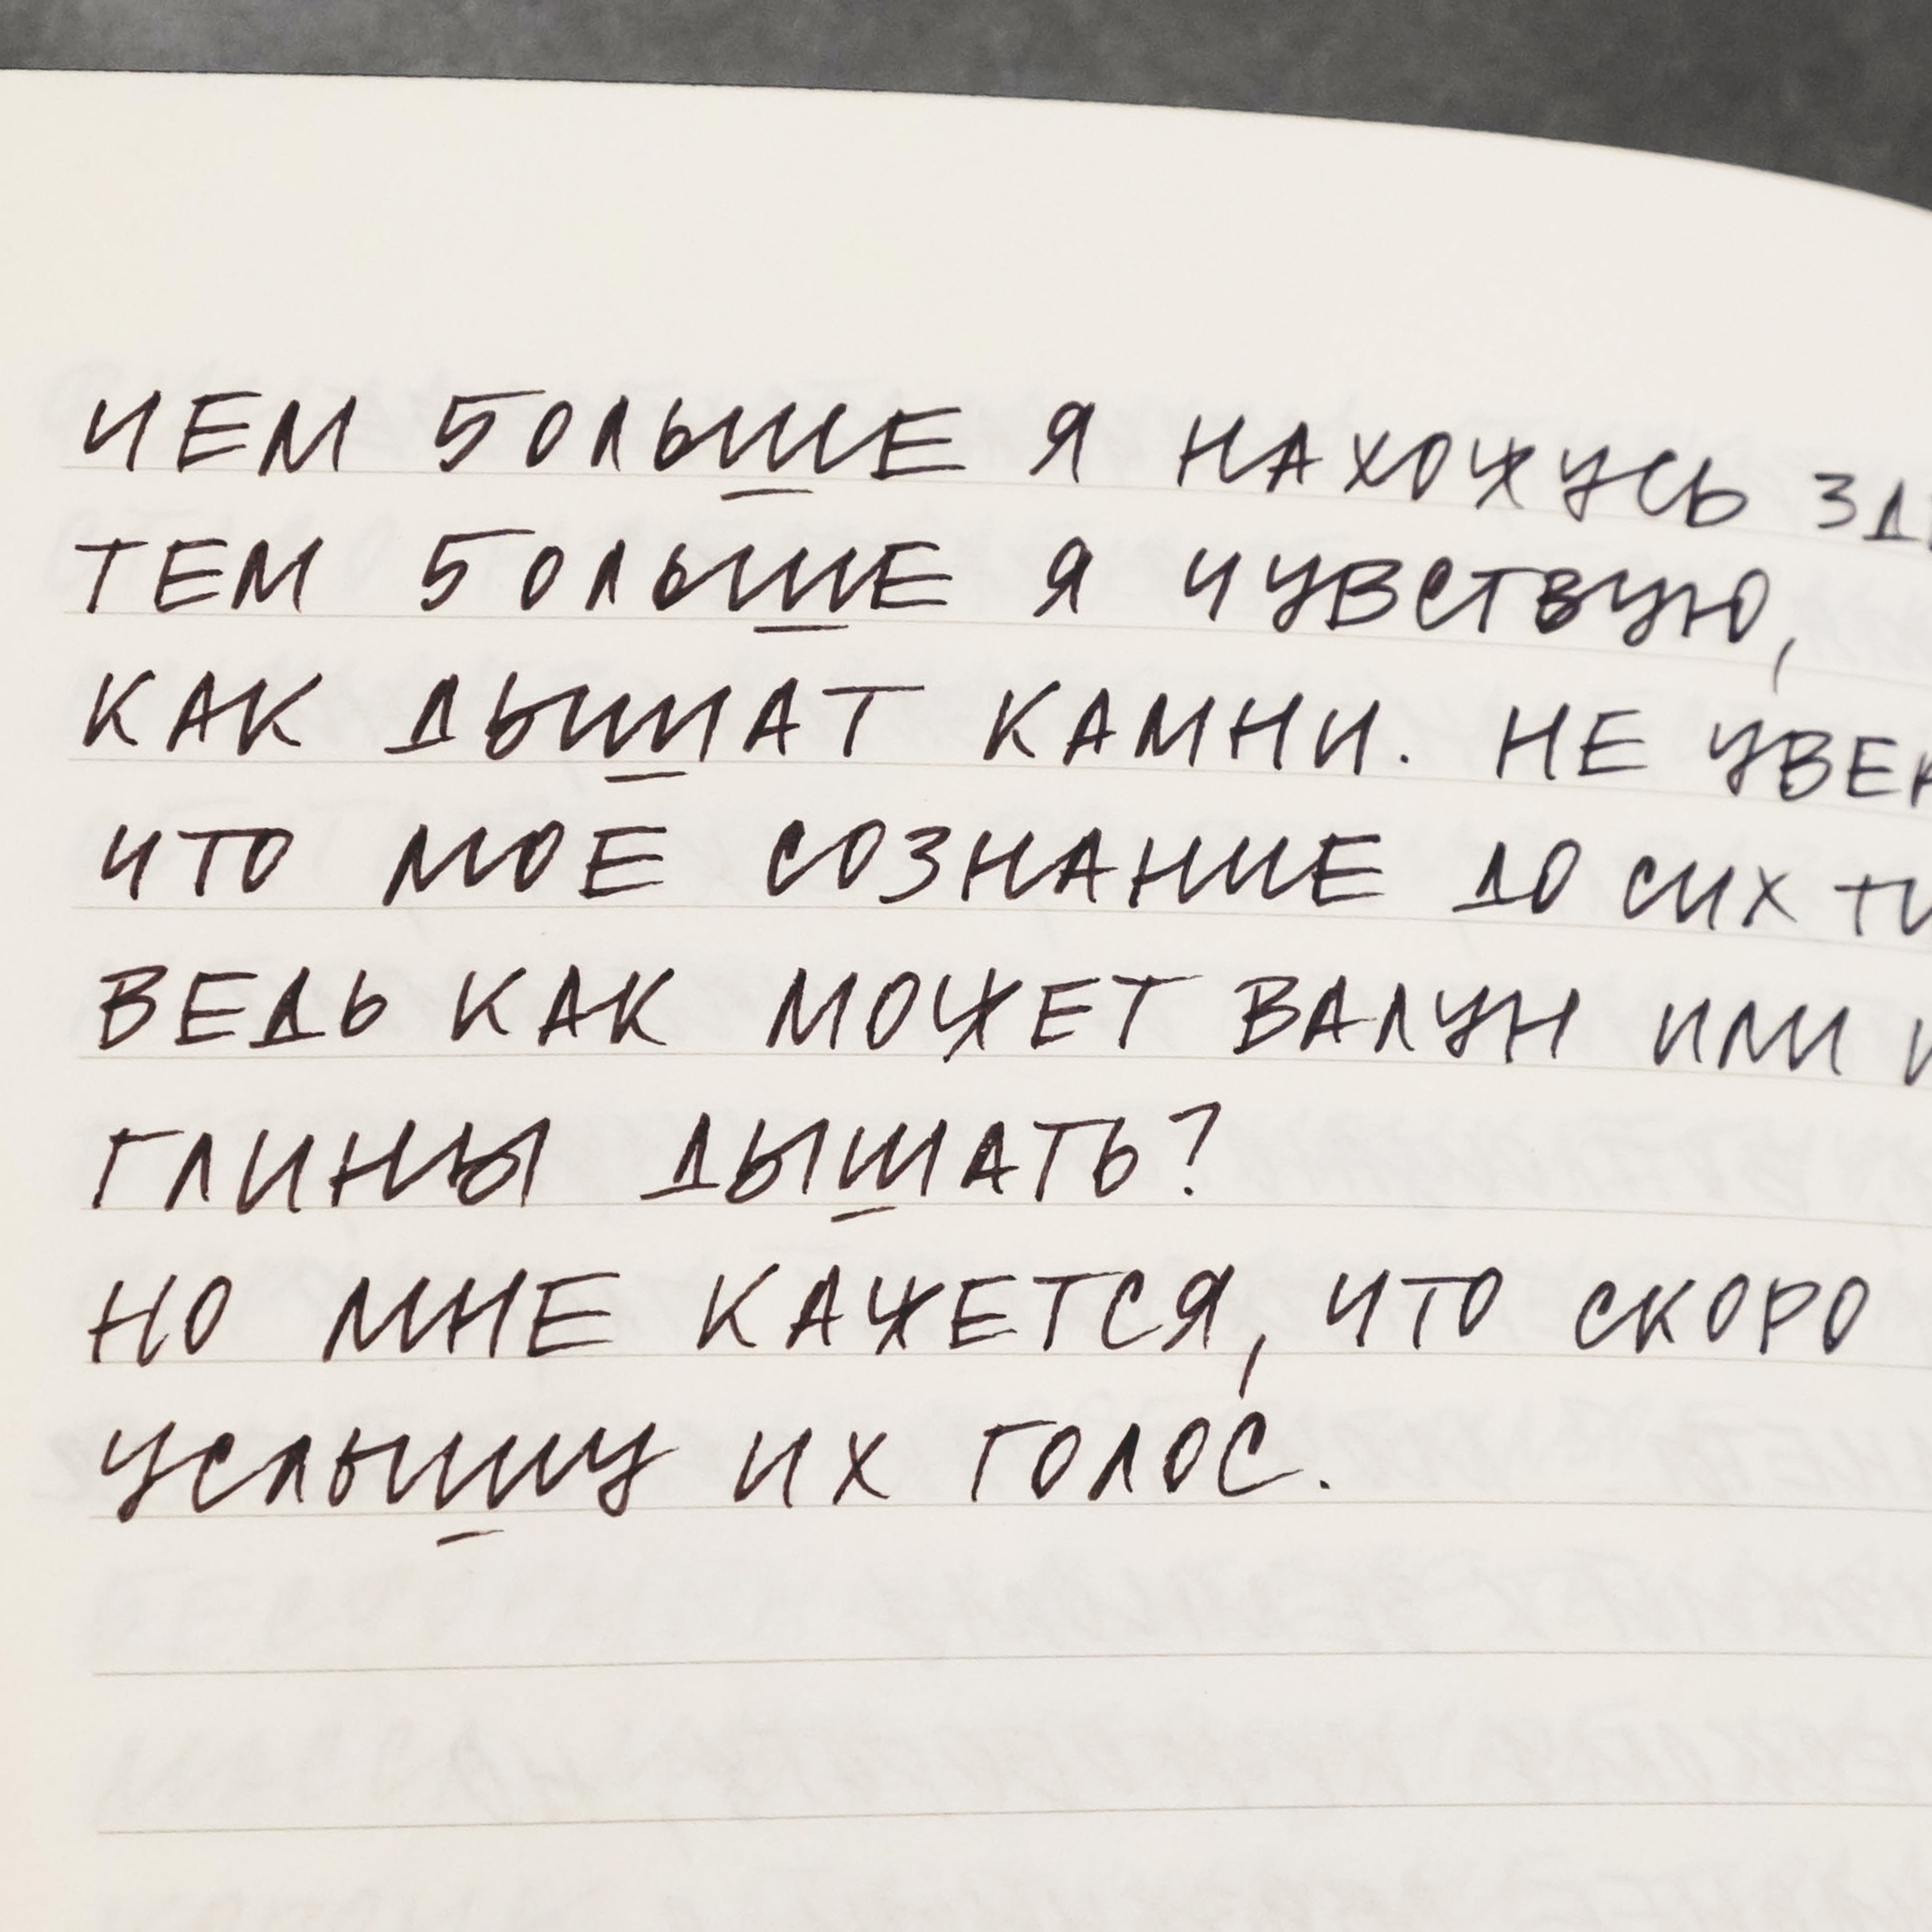 ЧЕМ БОЛЬШЕ Я НАХОЖУСЬ
ТЕМ БОЛЬШЕ Я ЧУВСТВУЮ,
КАК ДЫШАТ КАМНИ. НЕ
ЧТО МОЕ СОЗНАНИЕ ДО СИХ
ВЕДЬ КАК МОЖЕТ ВАЛУН ИЛИ
ГЛИНЫ ДЫШАТЬ?
НО МНЕ КАЖЕТСЯ, ЧТО СКОРО
УСЛЫШУ ИХ ГОЛОС.